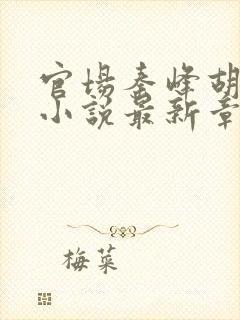 官场秦峰胡
小说最新章
梅菜